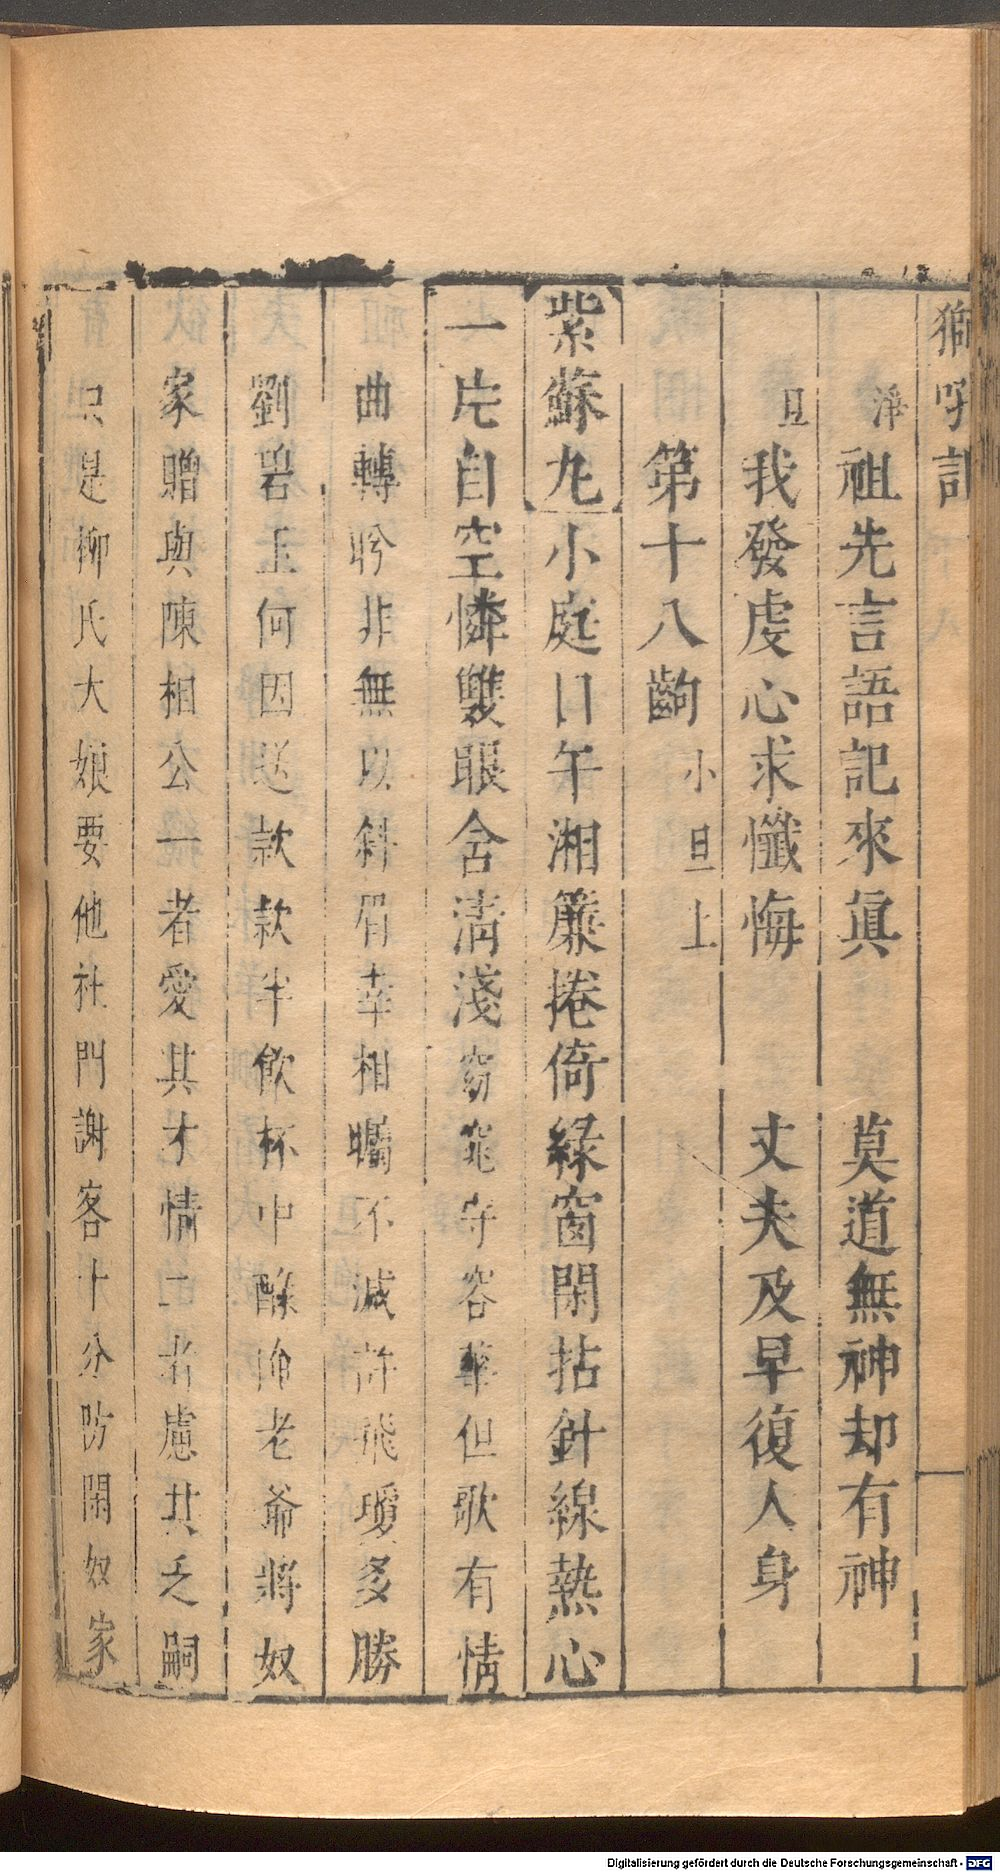 獅吼記
淨 祖先言語記來眞 莫道無神却有神
旦 我發虔心求懺悔 丈夫及早復人身
第十八齣 小旦上
紫蘇丸 小庭日午湘簾捲倚綠窗閑拈針線熱心
一片自空憐雙眼含清淺 窈窕守容華但歌有情
曲轉盻非無以斜眉幸相矚不減許飛瓊多勝
劉碧玉何因送款款半飲杯中醁 老爺將奴
家贈與陳相公一者愛其才情二者慮其乏嗣
只是柳氏大娘要他杜門謝客十分防閑奴家
Digitalisierung gefördert durch die Deutsche Forschungsgemeinschaft - DFG